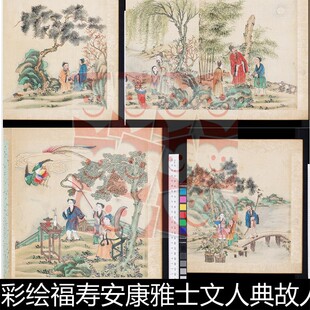 彩绘福寿安康雅士文人典故人